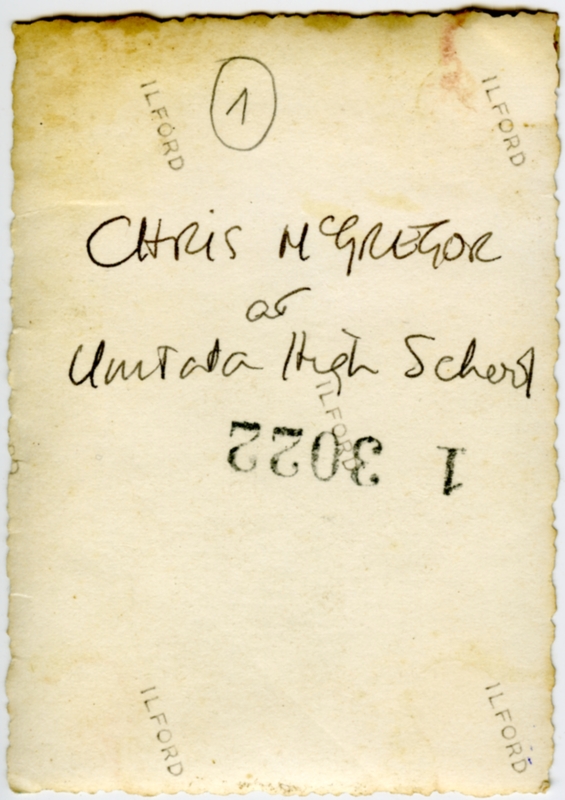 ILFORD
1
ILFORD
CHRIS McGREGOR
at
Umtata High School
ILFORD
1 3022
ILFORD
ILFORD